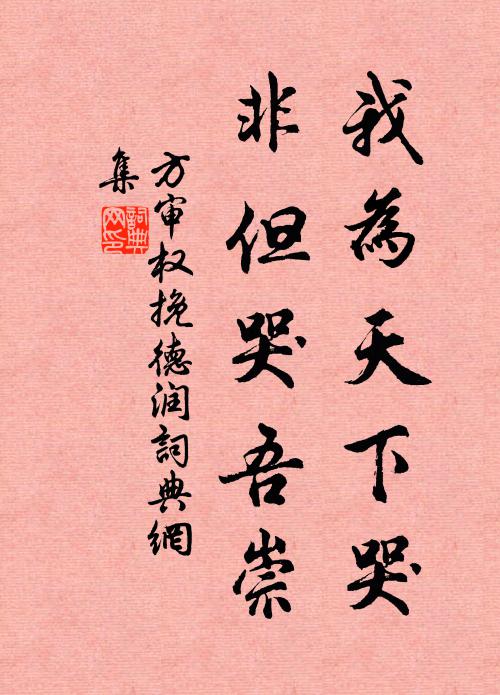 我為天下哭
非但哭吾崇
方审权挽德润詞典網
集
詞典
网印